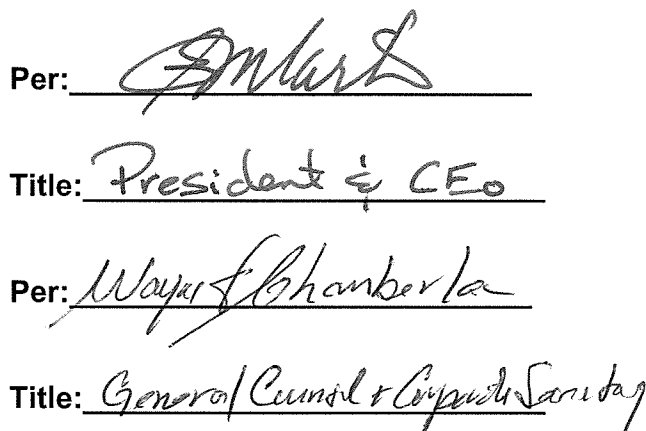 Per:
Title: President & CEO
Per: Wayne Chamberla
Title: General Counsel & Corporate Secretary